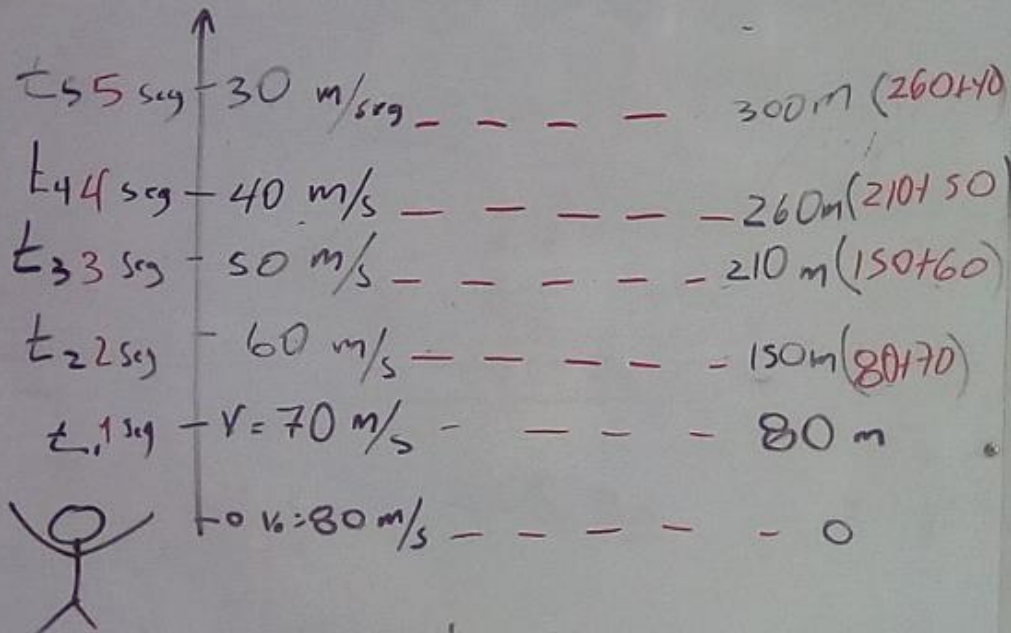 t5 5 seg 30 m/seg 300m (260+40
t4 4 seg 40 m/s 260m (210+50)
t3 3 seg 50 m/s 210 m (150+60)
t2 2 seg 60 m/s 150m (80+70)
t1 1 seg V = 70 m/s 80 m
0 V0 = 80 m/s 0